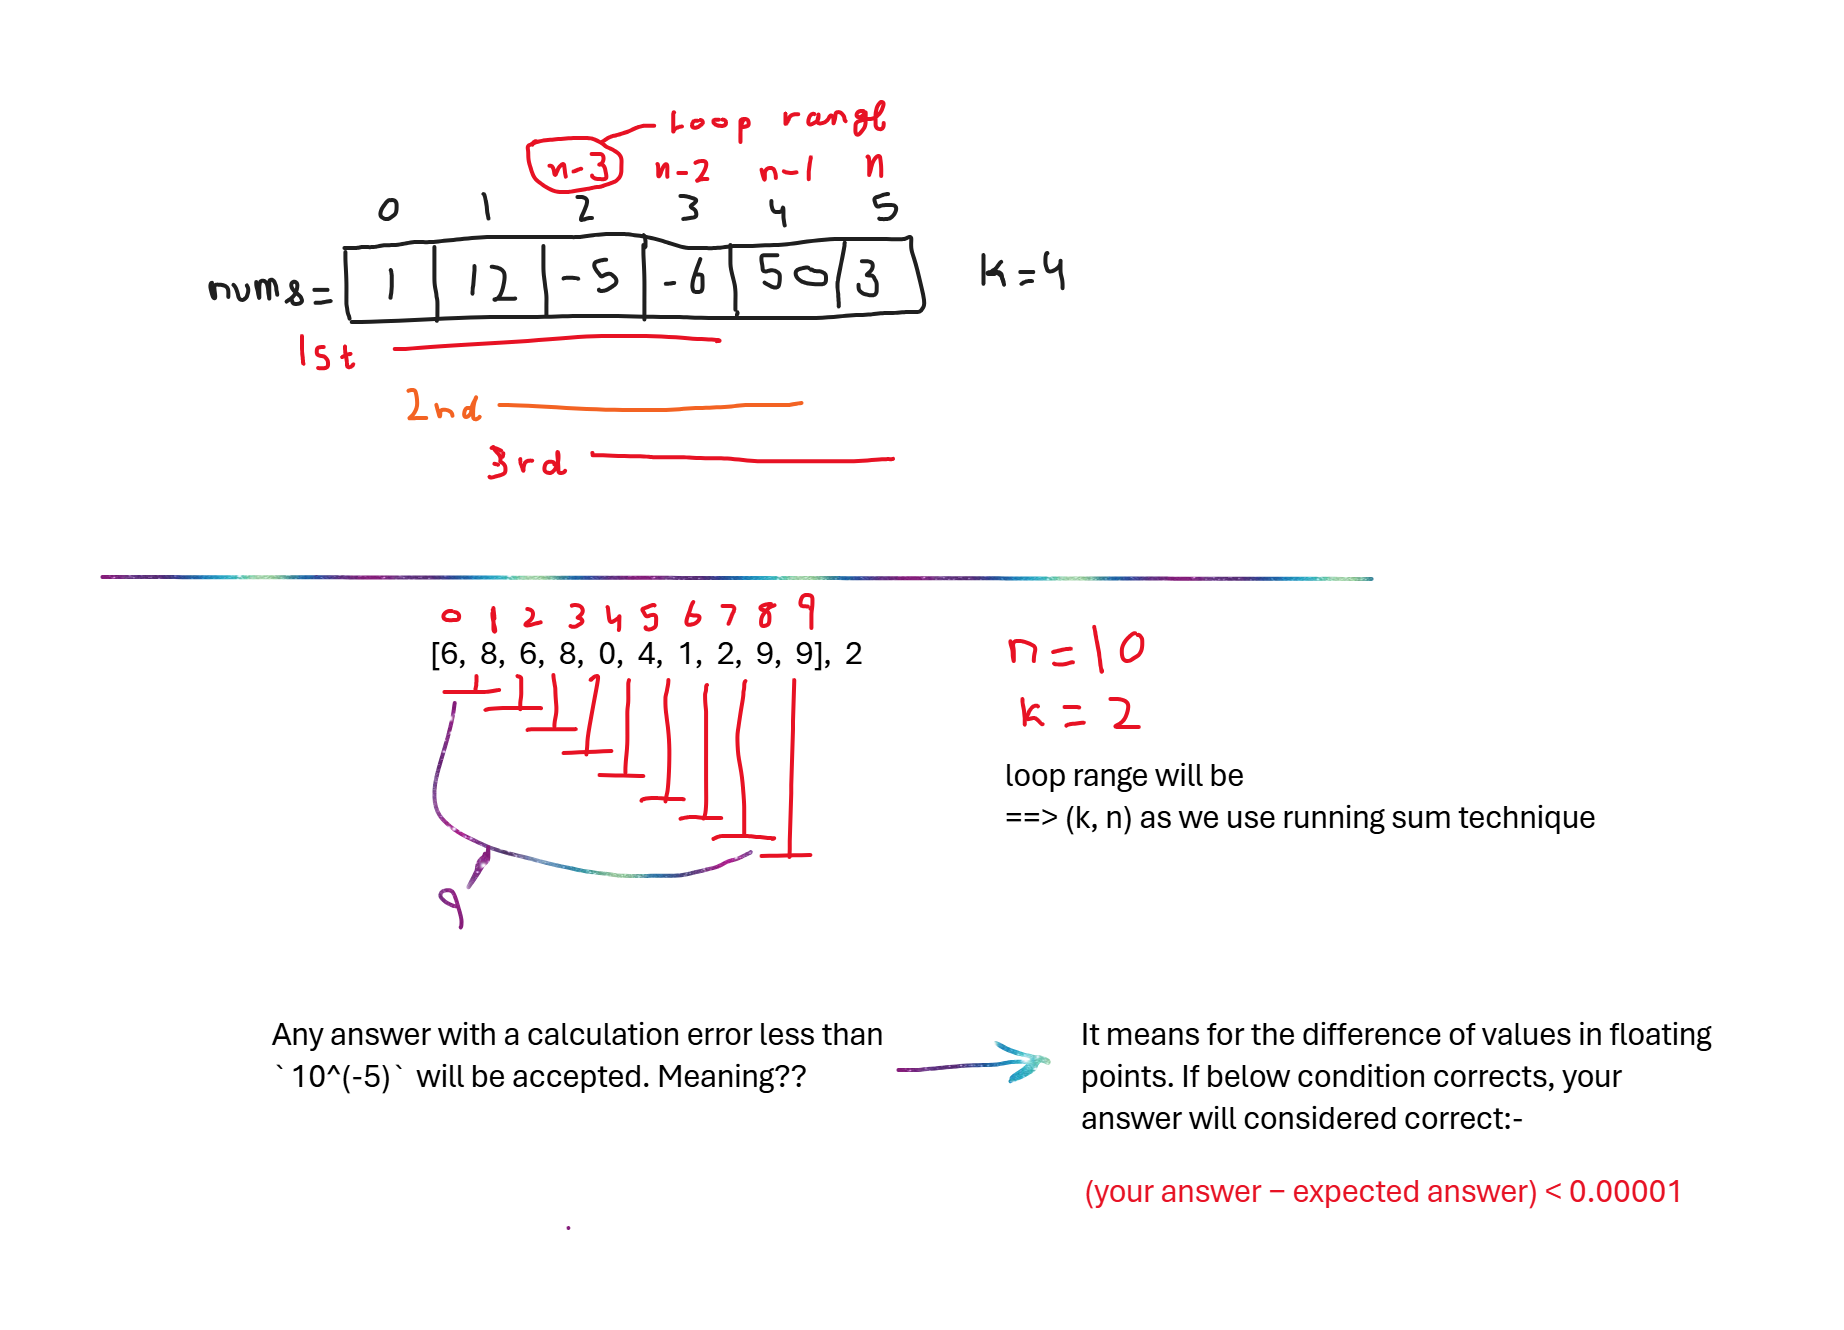 Loop range
n-3 n-2 n-1 n
0 1 2 3 4 5
nums= 1 12 -5 -6 50 3 k=4
1st
2nd
3rd
0 1 2 3 4 5 6 7 8 9
[6, 8, 6, 8, 0, 4, 1, 2, 9, 9], 2
n=10
k=2
loop range will be
==> (k, n) as we use running sum technique
9
Any answer with a calculation error less than
`10^(-5)` will be accepted. Meaning??
It means for the difference of values in floating
points. If below condition corrects, your
answer will considered correct:-
(your answer − expected answer) < 0.00001